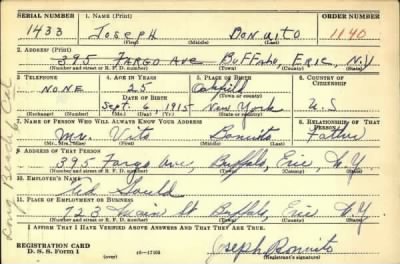 SERIAL NUMBER 1. NAME (Print) ORDER NUMBER
1433 Joseph Bonvito 1140
(First) (Middle) (Last)
2. ADDRESS (Print)
395 FARGO Ave Buffalo, Erie, N.Y
(Number and street or R. F. D. number) (Town) (County) (State)
3. TELEPHONE 4. AGE IN YEARS 5. PLACE OF BIRTH 6. COUNTRY OF CITIZENSHIP
NONE 25 Oakfield
DATE OF BIRTH (Town or county)
Sept. 6, 1915 New York U.S
(Exchange) (Number) (Mo.) (Day) (Yr.) (State or country)
7. NAME OF PERSON WHO WILL ALWAYS KNOW YOUR ADDRESS 8. RELATIONSHIP OF THAT PERSON
Mr. Vito Bonvito Father
(Mr., Mrs., Miss) (First) (Middle) (Last)
9. ADDRESS OF THAT PERSON
395 Fargo Ave, Buffalo, Erie N.Y
(Number and street or R. F. D. number) (Town) (County) (State)
10. EMPLOYER'S NAME
Ted Gould
11. PLACE OF EMPLOYMENT OR BUSINESS
723 Main St Buffalo, Erie N.Y
(Number and street or R. F. D. number) (Town) (County) (State)
I AFFIRM THAT I HAVE VERIFIED ABOVE ANSWERS AND THAT THEY ARE TRUE.
REGISTRATION CARD
D. S. S. Form 1 (over) Joseph Bonvito
(Registrant's signature)
Long Beach, Cal